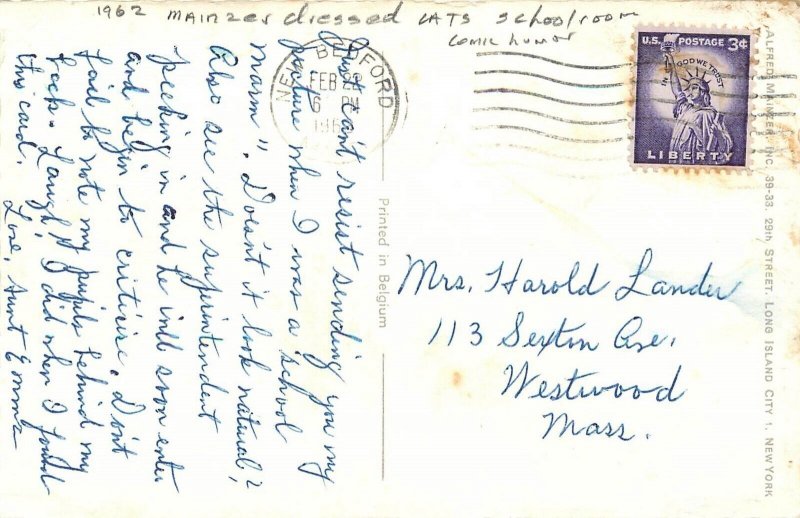 1962 MAINZER dressed CATS Schoolroom
comic humor
Just can't resist sending you my
picture when I was a "school
marm". Doesn't it look natural?
Also see the superintendent
peeking in and he will soon enter
and begin to criticise. Don't
fail to note my pupils behind my
back. Laugh! I did when I found
this card.
Love, Aunt Emma
NEW BEDFORD
FEB
PM
U.S. POSTAGE 3¢
IN GOD WE TRUST
LIBERTY
Printed in Belgium
Mrs. Harold Lander
113 Sexton Ave,
Westwood
Mass.
ALFRED MAINZER, INC. 39-33, 29th STREET, LONG ISLAND CITY 1, NEW YORK